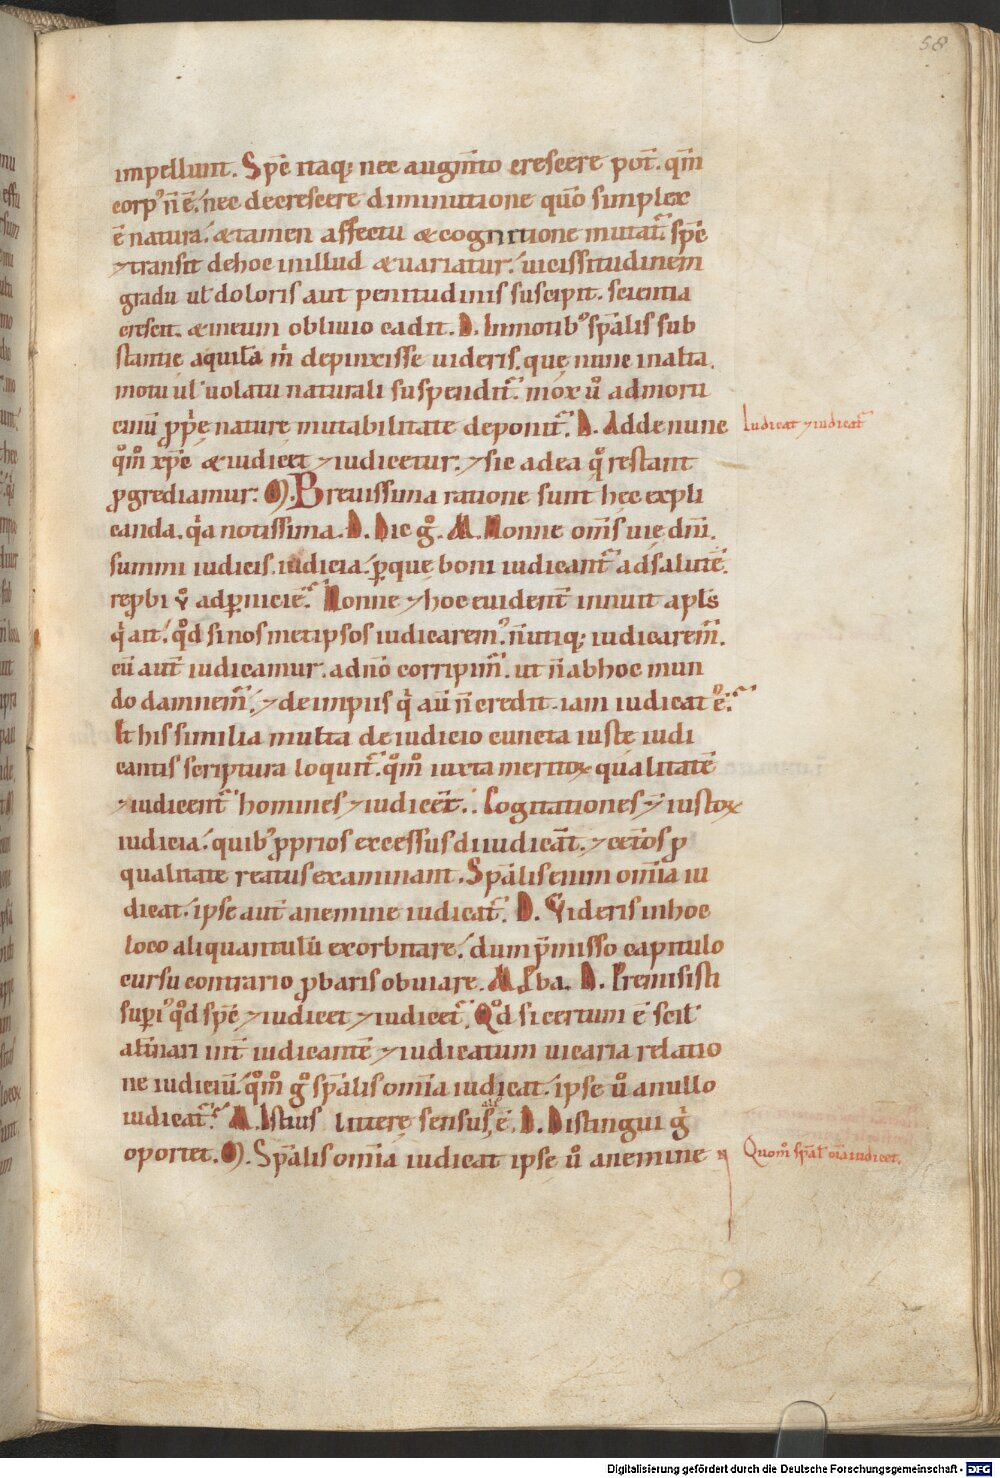 58
impellunt. Spc̄ itaq; nec augm̄to crescere pot̄. qm̄
corp᾽ n̄ ē. nec decrescere diminutione quō simplex
ē natura. & tamen affectu & cognitione mutat᷑ spc̄
⁊ transit de hoc in illud & uariatur. uicissitudinem
gradu ul᾽ doloris aut penitudinis suscipit. scientia
crescit. & in eum obliuio cadit. D. In motib᾽ sp̄alis sub
stantie aquilā m̄ depinxisse uideris. que nunc in alta
motu ul᾽ uolatu naturali suspendit᷑. mox uͦ ad morti
cinū ꝓp̄e nature mutabilitate deponit᷑. D. Adde nunc
Iudicat ⁊ iudicat᷑
qͦm̄ xp̄c & iudicet ⁊ iudicetur. ⁊ sic ad ea qͥ restant
ꝓgrediamur. M. Breuissima ratione sunt hec expli
canda. qͥa notissima. D. Dic gͦ. M. Nonne om̄s uie dn̄i.
summi iudicis. iudicia. ꝑ que boni iudicant᷑ ad salutē.
reꝓbi uͦ ad ꝑniciē. Nonne ⁊ hoc euident̄ innuit apl̄s
qͥ ait. qͦd si nos metipsos iudicarem᾽. n̄ utiq; iudicarem᷑.
cū aut̄ iudicamur. a dn̄o corripim᷑. ut n̄ ab hoc mun
do damnem᷑. ⁊ de impiis qͥ aū n̄ credit. iam iudicat᾽ ē.
Et his similia multa de iudicio cuncta iuste iudi
cantis scriptura loquit᷑. qͦm̄ iuxta meritoꝝ qualitatē
⁊ iudicent᷑ homines ⁊ iudicēt. Cogitationes ÿ iustoꝝ
iudicia. quib᾽ ꝓprios excessus diiudicāt. ⁊ cet̄os ꝓ
qualitate reatus examinant. Sp̄alis enim om̄ia iu
dicat. ipse aut̄ a nemine iudicat᷑. D. Videris in hoc
loco aliquantulū exorbitare. dum p̄misso capitulo
cursu contrario ꝓbaris obuiare. M. Vba. D. Premisisti
supi᾽ qͦd spc̄ ⁊ iudicet ⁊ iudicet᷑. Qͦd si certum ē scil᾽
alt̄nari int̄ iudicantē ⁊ iudicatum uicaria relatio
ne iudiciū. qͦm̄ gͦ sp̄alis om̄ia iudicat. ipse uͦ a nullo
iudicat᷑. M. Istius littere sensus ē. D. Distingui gͦ
oportet. M. Sp̄alis om̄ia iudicat ipse uͦ a nemine
Quom̄ sp̄al᾽ oīa iudicet.
Digitalisierung gefördert durch die Deutsche Forschungsgemeinschaft - DFG